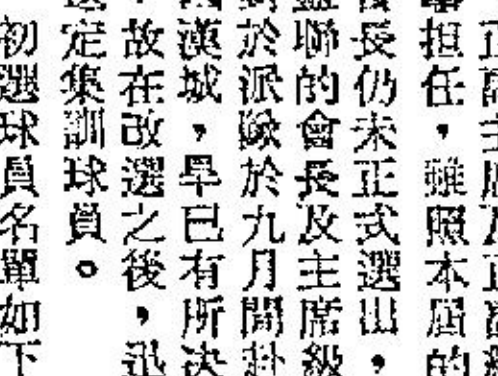 擔任，雖照本屆的
長仍未正式選出，
聯的會長及主席級
於派隊於九月開赴
漢城，早已有所決
，故在改選之後，迅
定集訓球員。
初選球員名單如下